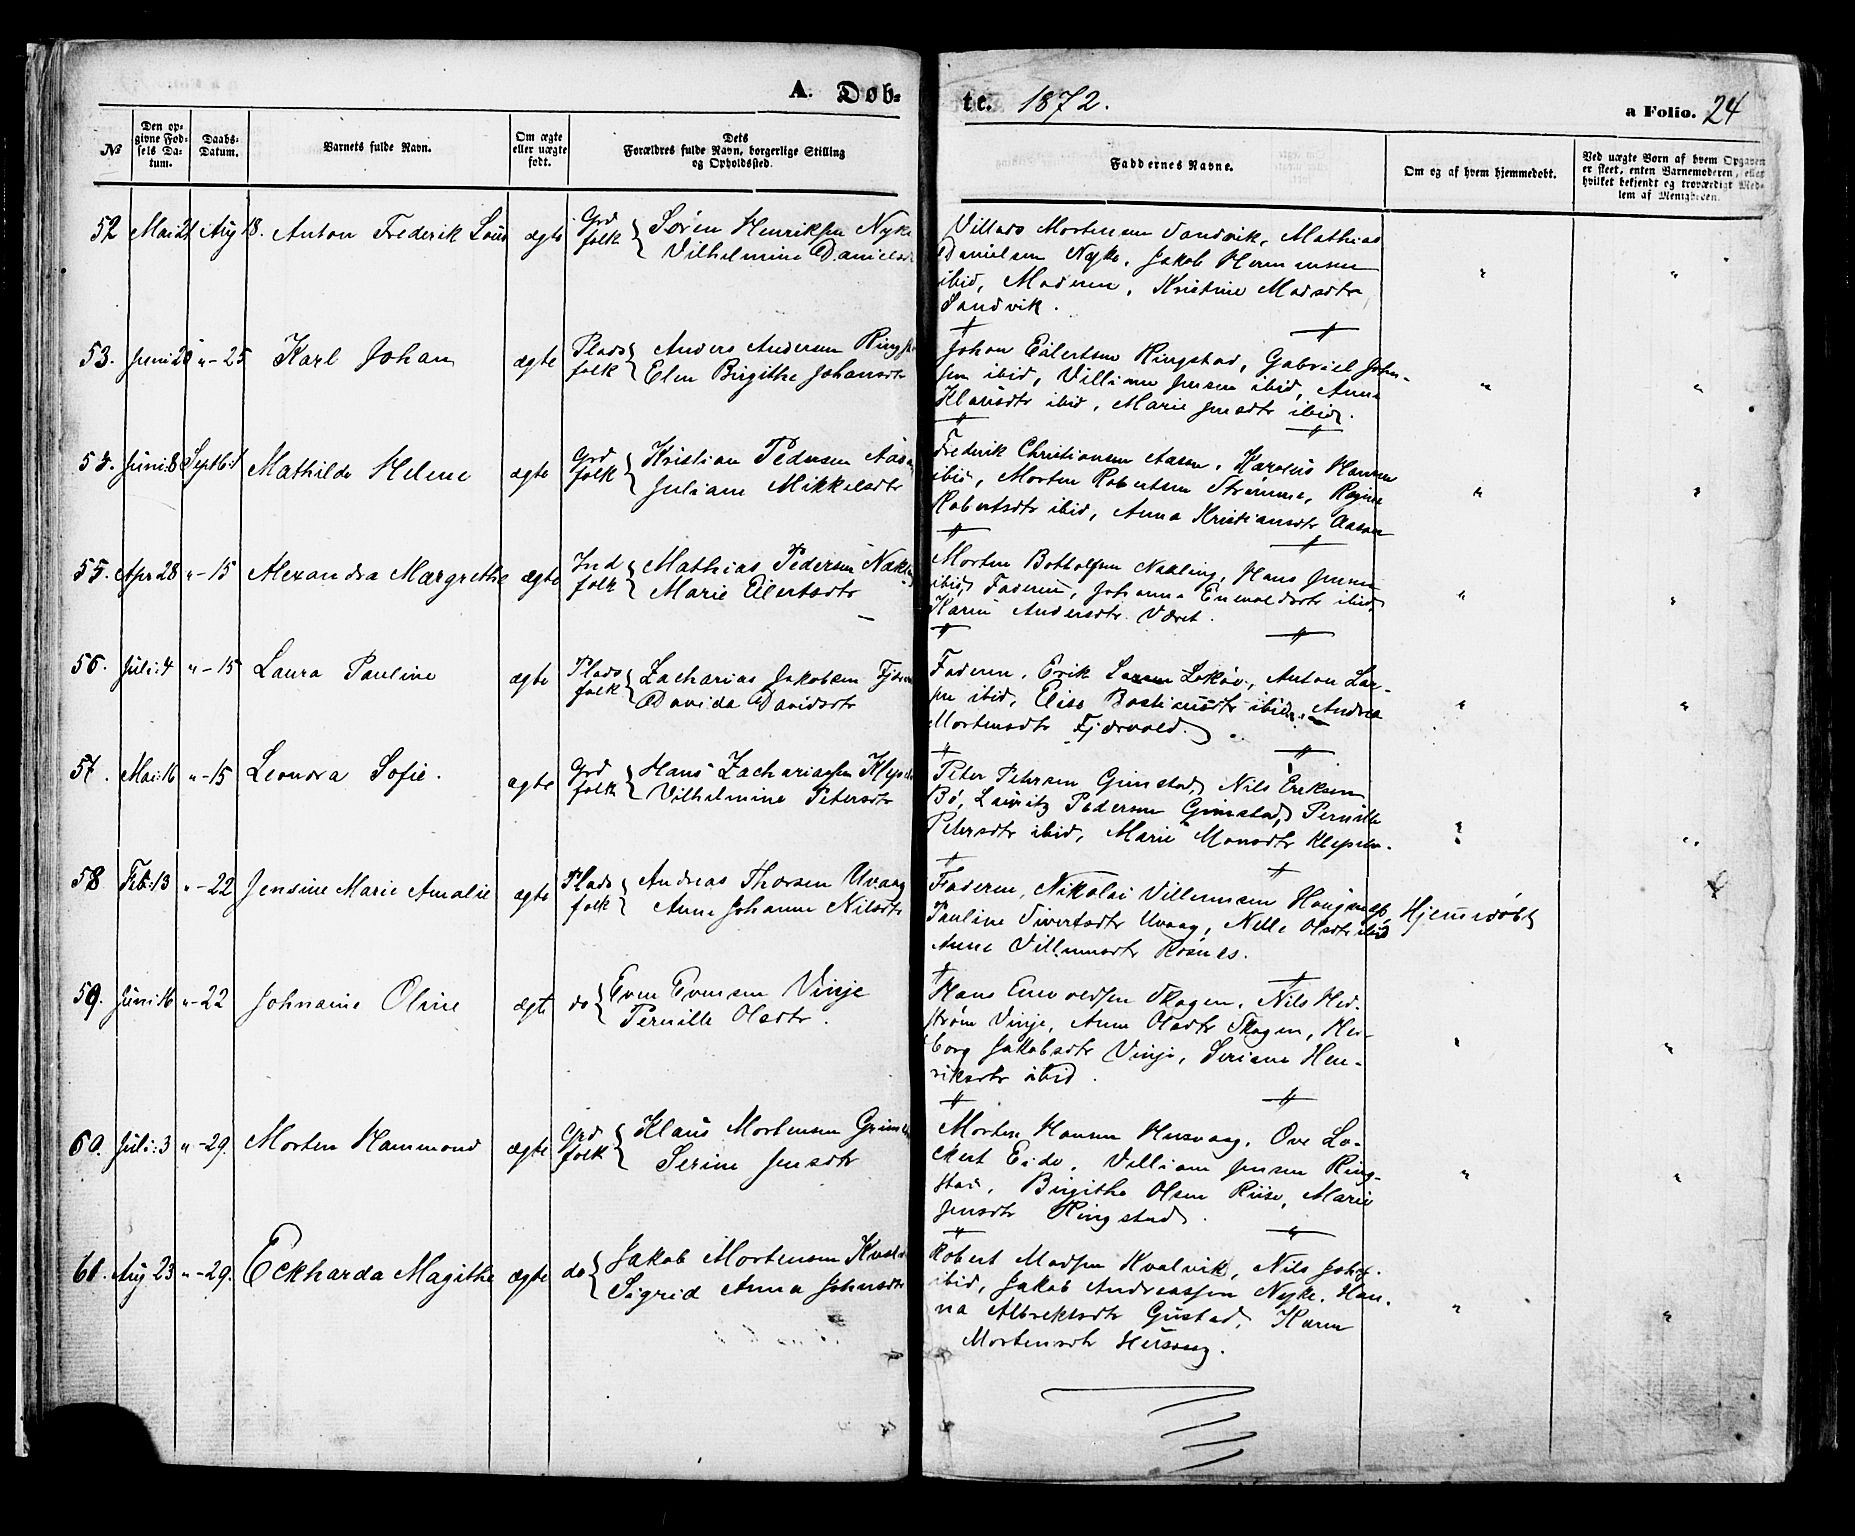 A. Døb-
te. 1872.
a Folio. 24
№
Den op-
givne Fød-
sels Da-
tum.
Daabs-
Datum.
Barnets fulde Navn.
Om ægte
eller uægte
født.
Dets
Forældres fulde Navn, borgerlige Stilling
og Opholdssted.
Faddernes Navne.
Om og af hvem hjemmedøbt.
Ved uægte Børn af hvem Opgaven
er skeet, enten Barnemoderen, eller
hvilket bekjendt og troværdigt Med-
lem af Menigheden.
52 Mai 21 Aug 18. Anton Frederik ægte
Grd
folk
Søren Henriksen Nyke
Vilhelmine Danielsd
Villads Mortensen Sandvik, Mathias
Danielsen Nyke, Jakob Hermansen
ibid, Moderen, Kristine Madsdtr
Sandvik.
53. Juni 20 " - 25 Karl Johan ægte
Plads
folk
Anders Andersen Ring
Elen Birgithe Johansdtr
Johan Eilertsen Ringstad, Gabriel John-
sen ibid, Villiam Jensen ibid, Anne
Klausdtr ibid, Marie Jensdtr ibid.
54. Juni 8 Septb. 1 Mathilde Helene ægte
Grd
folk
Kristian Pedersen Aasa
Juliane Mikkelsdtr
Frederik Christiansen Aasen, Hansen
ibid, Morten Robertsen Strømme, Regine
Robertsdtr ibid, Anna Kristiansdtr Aasen
55. Apr 28 " - 15 Alexandra Margrethe ægte
Ind
folk
Mathias Pedersen Nakl
Marie Eilertsdtr
Morten Botholfsen Nakling, Hans Jensen
ibid, Faderen, Johanna Enevoldsdtr ibid
Karen Andersdtr Været.
56. Juli 4 " - 15 Laura Pauline ægte
Plads
folk
Zacharias Jakobsen Fjær
Davida Davidsdtr
Faderen, Erik Larsen, Anton Lar-
sen ibid, Elise Bastiansdtr ibid, Andrea
Mortensdtr Fjærvold.
57. Mai 16 " - 15 Leonora Sofie. ægte
Grd
folk
Hans Zachariassen Kleps
Vilhelmine Petersdtr
Peter Petersen Gimstad, Nils Eriksen
Bø, Lauritz Pedersen Gimstad, Pernille
Petersdtr ibid, Marie Monsdtr
58 Feb: 13 " - 22 Jensine Marie Amalie ægte
Plads
folk
Andreas Thorsen Uvaag
Anne Johanne Nilsdtr
Faderen, Nikolai Villumsen
Pauline Sivertsdtr Uvaag, Nelle Olsdtr ibid
Anne Villumsdtr Rosnes.
Hjemmedøbt
59. Juni 16 " - 22 Johnaine Oline ægte
do
Even Evensen Vinje
Pernille Olsdtr.
Hans Enevoldsen Skagen, Nils Hed-
strøm Vinje, Anne Olsdtr Skagen, Her-
borg Jakobsdtr Vinje, Seriane Hen-
riksdtr ibid.
60. Juli: 3 " - 29. Morten Hammond ægte
Grd
folk
Klaus Mortensen Grims
Serine Jensdtr
Morten Hansen Husvaag, Ove Lo-
ckert Eide, Villiam Jensen Ring-
stad, Birgithe Olsen Riise, Marie
Jensdtr Ringstad.
61. Aug 23 " - 29. Eckharda Magithe ægte
do
Jakob Mortensen Kval
Sigrid Anna Johnsdtr
Robert Madsen Kvalvik, Nils Johns.
ibid, Jakob Andreassen Nyke, Han-
na Albrektsdtr Gustad, Karen
Mortensdtr Husvaag.